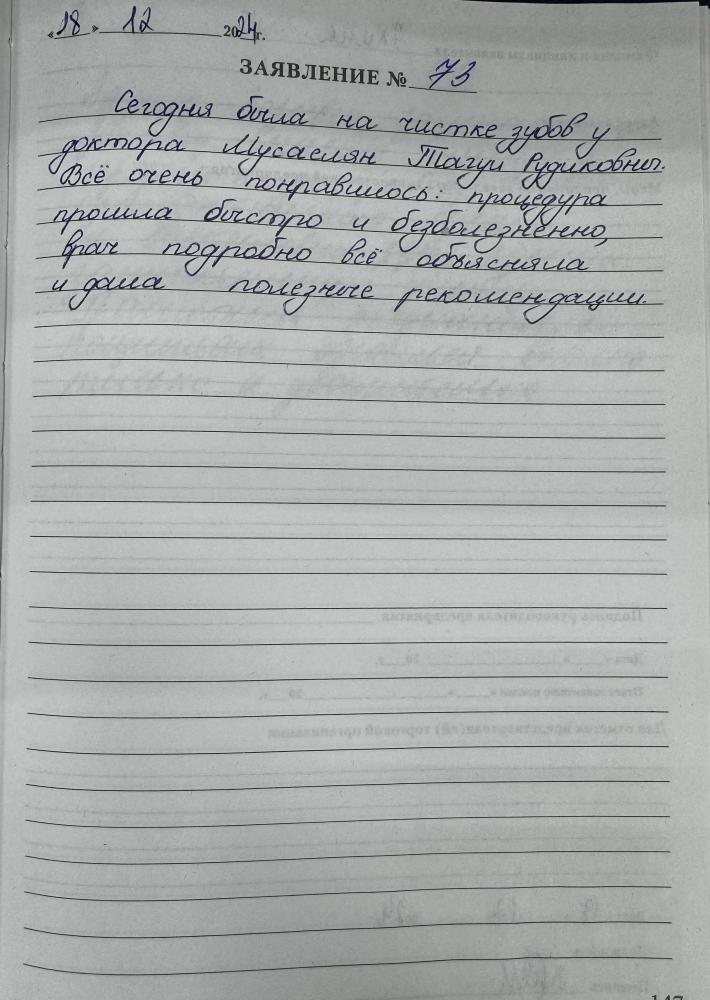 «18» 12 2024г.
ЗАЯВЛЕНИЕ № 73
Сегодня была на чистке зубов у
доктора Мусаелян Тагуи Рудиковны.
Всё очень понравилось: процедура
прошла быстро и безболезненно,
врач подробно всё объясняла
и дала полезные рекомендации.
147